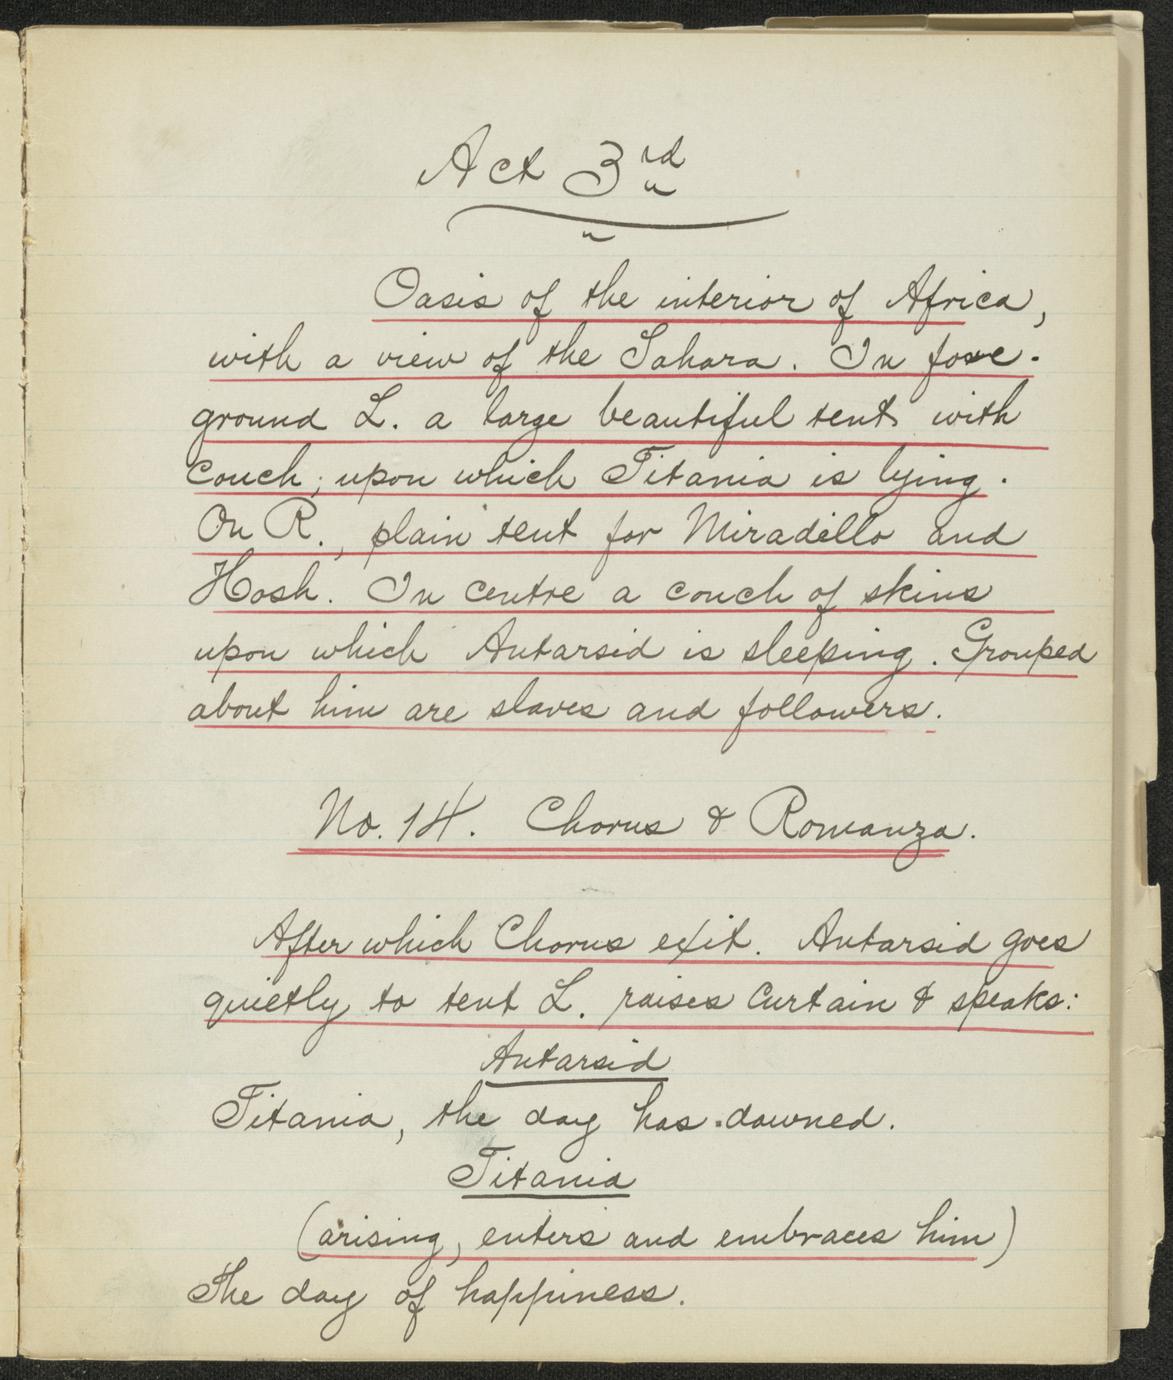 Act 3rd
Oasis of the interior of Africa,
with a view of the Sahara. In fore-
ground L. a large beautiful tent with
couch, upon which Titania is lying.
On R., plain tent for Miradillo and
Hosh. In centre a couch of skins
upon which Antarsid is sleeping. Grouped
about him are slaves and followers.
No. 14. Chorus & Romanza.
After which Chorus exit. Antarsid goes
quietly to tent L. raises curtain & speaks:
Antarsid
Titania, the day has dawned.
Titania
(arising, enters and embraces him)
The day of happiness.